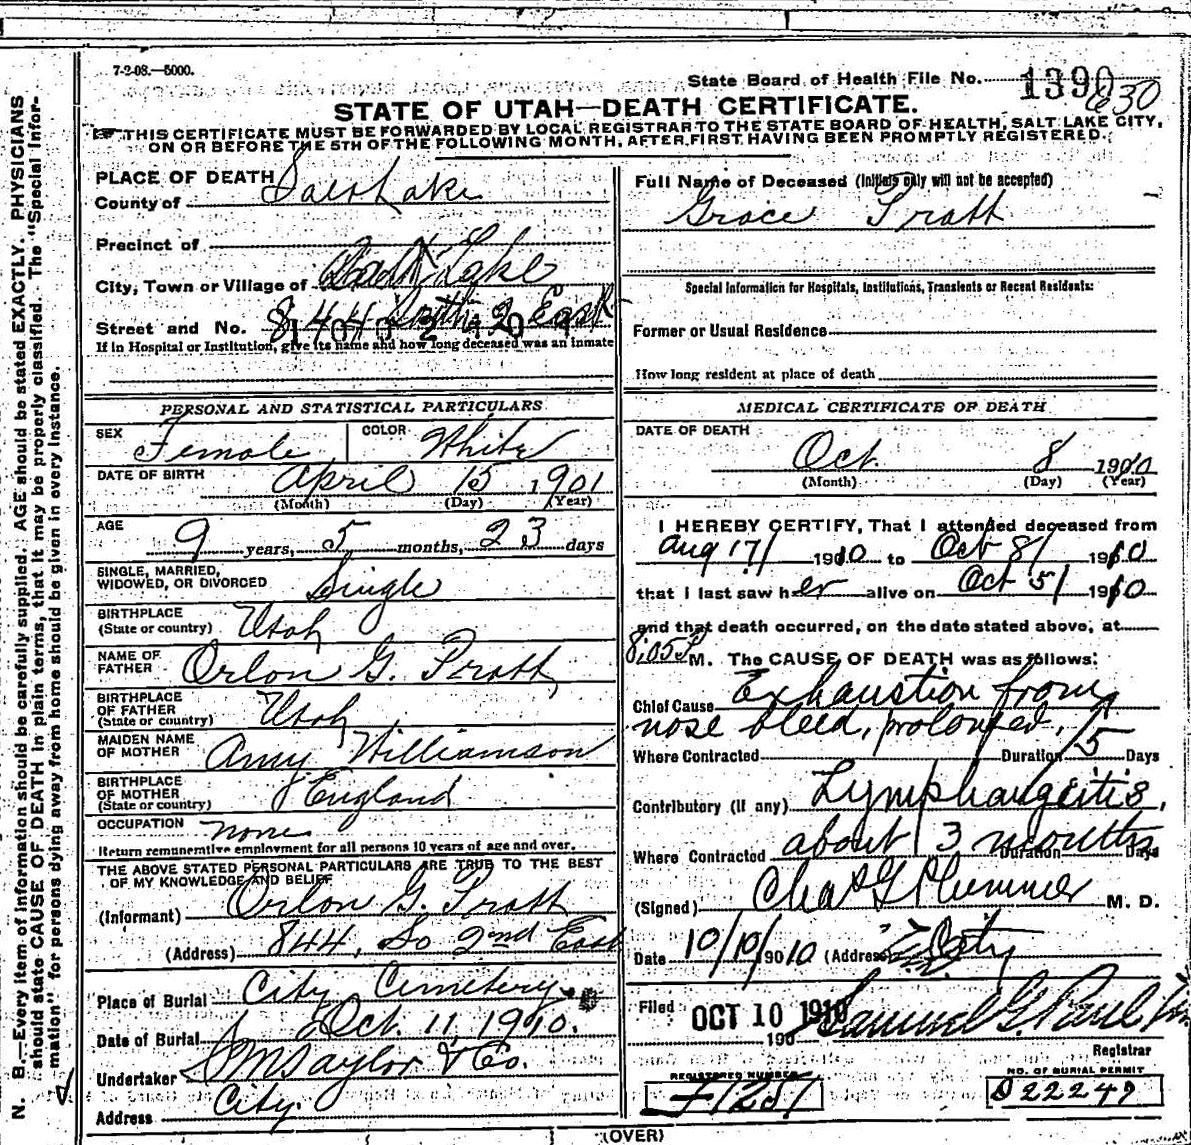 7-2-08.—5000.
State Board of Health File No. 1390
630
STATE OF UTAH—DEATH CERTIFICATE.
THIS CERTIFICATE MUST BE FORWARDED BY LOCAL REGISTRAR TO THE STATE BOARD OF HEALTH, SALT LAKE CITY,
ON OR BEFORE THE 5TH OF THE FOLLOWING MONTH, AFTER FIRST HAVING BEEN PROMPTLY REGISTERED.
N. B.—Every item of information should be carefully supplied. AGE should be stated EXACTLY. PHYSICIANS
should state CAUSE OF DEATH in plain terms, that it may be properly classified. The "Special Infor-
mation" for persons dying away from home should be given in every instance.
PLACE OF DEATH
County of Salt Lake
Precinct of
City, Town or Village of Salt Lake
Street and No. 844 South 2 East
If in Hospital or Institution, give its name and how long deceased was an inmate
PERSONAL AND STATISTICAL PARTICULARS
SEX Female COLOR White
DATE OF BIRTH April 15 1901
(Month) (Day) (Year)
AGE 9 years, 5 months, 23 days
SINGLE, MARRIED,
WIDOWED, OR DIVORCED Single
BIRTHPLACE
(State or country) Utah
NAME OF
FATHER Orlon G. Pratt
BIRTHPLACE
OF FATHER
(State or country) Utah
MAIDEN NAME
OF MOTHER Amy Williamson
BIRTHPLACE
OF MOTHER
(State or country) England
OCCUPATION none
Return remunerative employment for all persons 10 years of age and over.
THE ABOVE STATED PERSONAL PARTICULARS ARE TRUE TO THE BEST
OF MY KNOWLEDGE AND BELIEF
(Informant) Orlon G. Pratt
(Address) 844, So 2nd East
Place of Burial City Cemetery.
Date of Burial Oct. 11 1910.
Undertaker S M Taylor & Co.
Address City.
Full Name of Deceased (Initials only will not be accepted)
Grace Pratt
Special Information for Hospitals, Institutions, Transients or Recent Residents:
Former or Usual Residence
How long resident at place of death
MEDICAL CERTIFICATE OF DEATH
DATE OF DEATH
Oct. 8 1910
(Month) (Day) (Year)
I HEREBY CERTIFY, That I attended deceased from
Aug 17/ 1910 to Oct 8/ 1910
that I last saw her alive on Oct 5/ 1910
and that death occurred, on the date stated above, at
8.05 P M. The CAUSE OF DEATH was as follows:
Chief Cause Exhaustion from
nose bleed, prolonged,
Where Contracted Duration 5 Days
Contributory (if any) Lymphangeitis,
about 3 months
Where Contracted Duration Days
(Signed) Chas G Plummer M. D.
Date 10/10/1910 (Address) City
Filed OCT 10 1910 Samuel G. Paul
190
Registrar
REGISTERED NUMBER NO. OF BURIAL PERMIT
F1257 D22249
(OVER)